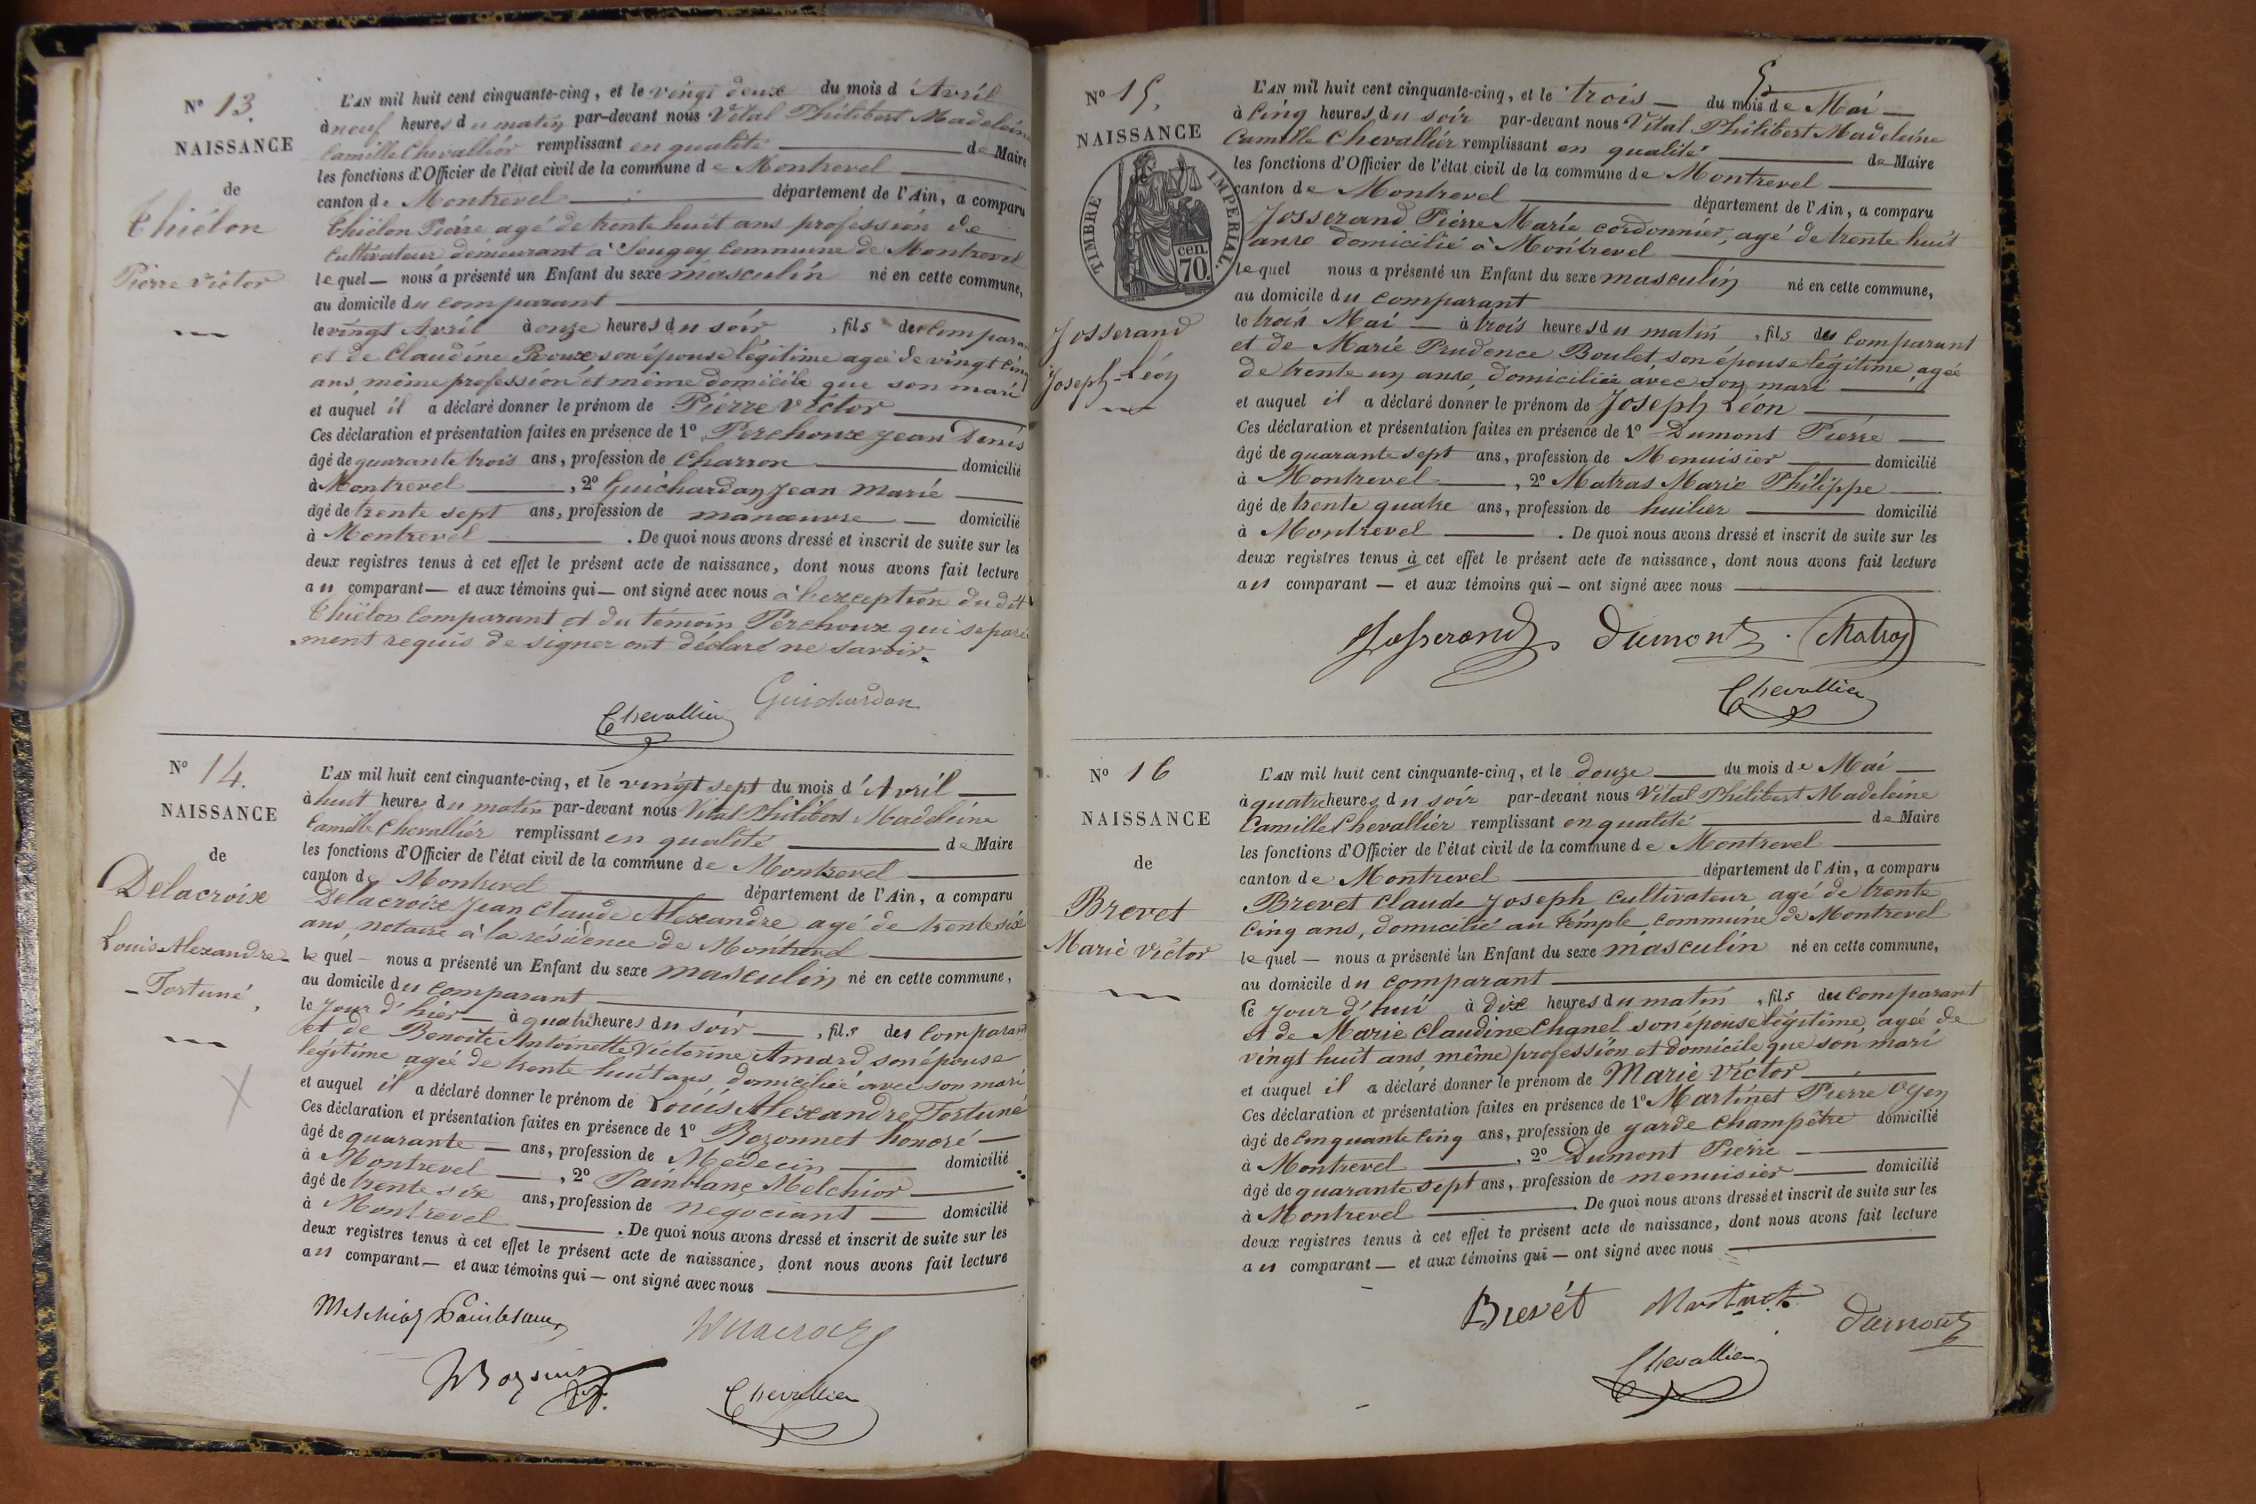 N° 13.
NAISSANCE
de
Thiélon
Pierre Victor
L'AN mil huit cent cinquante-cinq, et le vingt deux du mois d'Avril
à neuf heures du matin par-devant nous Vital Philibert Madeleine
Camille Chevallier remplissant en qualité de Maire
les fonctions d'Officier de l'état civil de la commune de Montrevel
canton de Montrevel département de l'Ain, a comparu
Thiélon Pierre agé de trente huit ans profession de
cultivateur demeurant à Jeugey commune de Montrevel
lequel nous a présenté un Enfant du sexe masculin né en cette commune,
au domicile du comparant
le vingt Avril à onze heures du soir, fils du comparant
et de Claudine Roux son épouse légitime agée de vingt cinq
ans, même profession et même domicile que son mari
et auquel il a déclaré donner le prénom de Pierre Victor
Ces déclaration et présentation faites en présence de 1° Perchoux Jean Denis
âgé de quarante trois ans, profession de Charron domicilié
à Montrevel, 2° Guichardon Jean Marie
âgé de trente sept ans, profession de manœuvre domicilié
à Montrevel. De quoi nous avons dressé et inscrit de suite sur les
deux registres tenus à cet effet le présent acte de naissance, dont nous avons fait lecture
au comparant — et aux témoins qui — ont signé avec nous à l'exception du dit
Thiélon comparant et du témoin Perchoux qui séparé
ment requis de signer ont déclaré ne savoir.
Guichardon
Chevallier
N° 14.
NAISSANCE
de
Delacroix
Louis Alexandre
Fortuné
L'AN mil huit cent cinquante-cinq, et le vingt sept du mois d'Avril
à huit heures du matin par-devant nous Vital Philibert Madeleine
Camille Chevallier remplissant en qualité de Maire
les fonctions d'Officier de l'état civil de la commune de Montrevel
canton de Montrevel département de l'Ain, a comparu
Delacroix Jean Claude Alexandre agé de trente six
ans, notaire à la résidence de Montrevel
lequel — nous a présenté un Enfant du sexe masculin né en cette commune,
au domicile du comparant
le jour d'hier à quatre heures du soir, fils du comparant
et de Benoite Antoinette Victorine Amard son épouse
légitime agée de trente huit ans, domiciliée avec son mari
et auquel il a déclaré donner le prénom de Louis Alexandre Fortuné
Ces déclaration et présentation faites en présence de 1° Bozonnet honoré
âgé de quarante ans, profession de Médecin domicilié
à Montrevel, 2° Painblanc Melchior
âgé de trente six ans, profession de négociant domicilié
à Montrevel. De quoi nous avons dressé et inscrit de suite sur les
deux registres tenus à cet effet le présent acte de naissance, dont nous avons fait lecture
au comparant — et aux témoins qui — ont signé avec nous
Melchior Painblanc Delacroix
Chevallier
5
N° 15.
NAISSANCE
TIMBRE IMPERIAL.
cen.
70.
Josserand
Joseph-Léon
L'AN mil huit cent cinquante-cinq, et le trois du mois de Mai
à cinq heures du soir par-devant nous Vital Philibert Madeleine
Camille Chevallier remplissant en qualité de Maire
les fonctions d'Officier de l'état civil de la commune de Montrevel
canton de Montrevel département de l'Ain, a comparu
Josserand Pierre Marie cordonnier, agé de trente huit
ans domicilié à Montrevel
lequel nous a présenté un Enfant du sexe masculin né en cette commune,
au domicile du comparant
le trois Mai à trois heures du matin, fils du comparant
et de Marie Prudence Boulet, son épouse légitime, agée
de trente un ans, domiciliée avec son mari
et auquel il a déclaré donner le prénom de Joseph Léon
Ces déclaration et présentation faites en présence de 1° Dumont Pierre
âgé de quarante sept ans, profession de Menuisier domicilié
à Montrevel, 2° Matras Marie Philippe
âgé de trente quatre ans, profession de huilier domicilié
à Montrevel. De quoi nous avons dressé et inscrit de suite sur les
deux registres tenus à cet effet le présent acte de naissance, dont nous avons fait lecture
au comparant — et aux témoins qui — ont signé avec nous
Josserand Dumont Matras
Chevallier
N° 16
NAISSANCE
de
Brevet
Marie Victor
L'AN mil huit cent cinquante-cinq, et le douze du mois de Mai
à quatre heures du soir par-devant nous Vital Philibert Madeleine
Camille Chevallier remplissant en qualité de Maire
les fonctions d'Officier de l'état civil de la commune de Montrevel
canton de Montrevel département de l'Ain, a comparu
Brevet Claude Joseph cultivateur agé de trente
cinq ans, domicilié au Temple, commune de Montrevel
lequel — nous a présenté un Enfant du sexe masculin né en cette commune,
au domicile du comparant
le jour d'hui à dix heures du matin, fils du comparant
et de Marie Claudine Chanel son épouse légitime, agée de
vingt huit ans, même profession et domicile que son mari
et auquel il a déclaré donner le prénom de Marie Victor
Ces déclaration et présentation faites en présence de 1° Martinet Pierre Oyen
âgé de cinquante cinq ans, profession de garde champêtre domicilié
à Montrevel, 2° Dumont Pierre
âgé de quarante sept ans, profession de menuisier domicilié
à Montrevel. De quoi nous avons dressé et inscrit de suite sur les
deux registres tenus à cet effet le présent acte de naissance, dont nous avons fait lecture
au comparant — et aux témoins qui — ont signé avec nous
Brevét Martinet Dumont
Chevallier